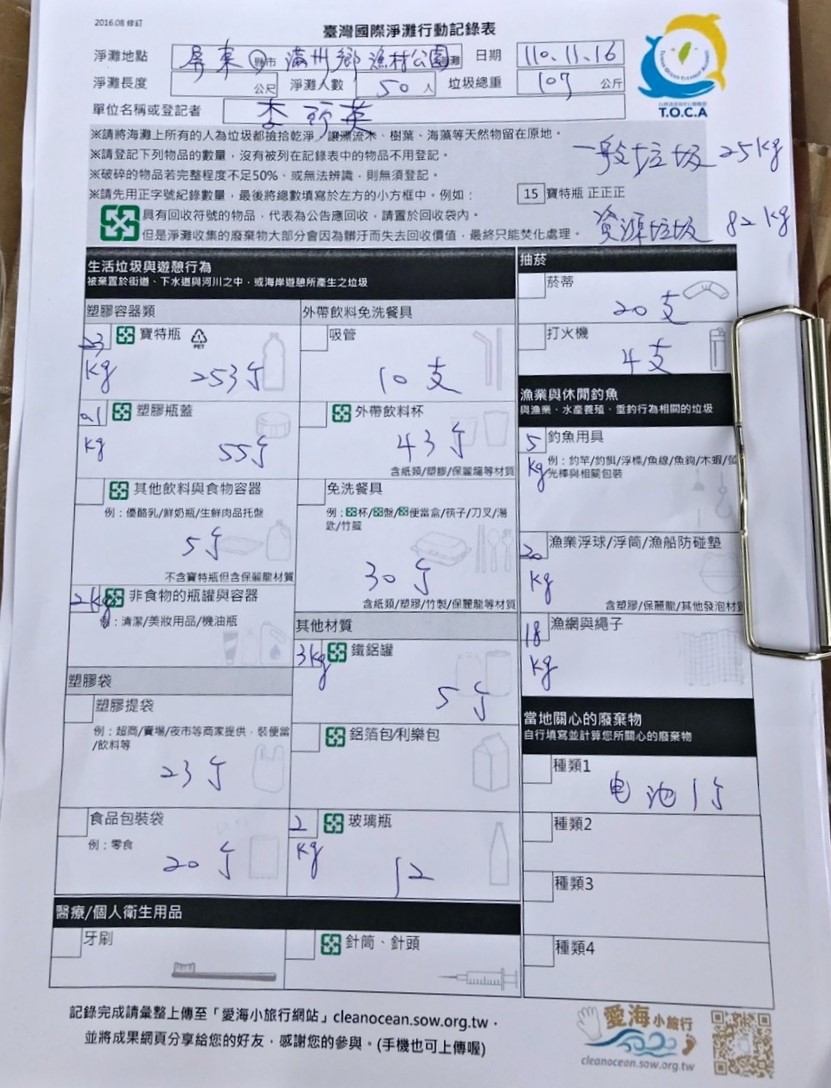 2016.08 修訂
臺灣國際淨灘行動記錄表
淨灘地點 屏東 縣市 滿州鄉 漁村公園 灘 日期 110.11.16
淨灘長度 公尺 淨灘人數 50 人 垃圾總重 107 公斤
單位名稱或登記者
T.O.C.A
※請將海灘上所有的人為垃圾都撿拾乾淨，讓漂流木、樹葉、海藻等天然物留在原地。
※請登記下列物品的數量，沒有被列在記錄表中的物品不用登記。
一般垃圾 25kg
※破碎的物品若完整程度不足50%、或無法辨識，則無須登記。
※請先用正字號紀錄數量，最後將總數填寫於左方的小方框中。例如： 15 寶特瓶 正正正
具有回收符號的物品，代表為公告應回收，請置於回收袋內。
但是淨灘收集的廢棄物大部分會因為髒汙而失去回收價值，最終只能焚化處理。
資源垃圾 82kg
生活垃圾與遊憩行為
被棄置於街道、下水道與河川之中，或海岸遊憩所產生之垃圾
塑膠容器類
23 kg 寶特瓶 PET
253个
0.1 kg 塑膠瓶蓋
55个
其他飲料與食物容器
例：優酪乳/鮮奶瓶/生鮮肉品托盤
5个
不含寶特瓶但含保麗龍材質
2kg 非食物的瓶罐與容器
例：清潔/美妝用品/機油瓶
塑膠袋
塑膠提袋
例：超商/賣場/夜市等商家提供，裝便當
/飲料等
23个
食品包裝袋
例：零食
20个
外帶飲料免洗餐具
吸管
10支
外帶飲料杯
43个
含紙類/塑膠/保麗龍等材質
免洗餐具
例：杯/盤/便當盒/筷子/刀叉/湯
匙/竹籤
30个
含紙類/塑膠/竹製/保麗龍等材質
其他材質
3kg 鐵鋁罐
5个
鋁箔包/利樂包
2 kg 玻璃瓶
12
醫療/個人衛生用品
牙刷
針筒、針頭
抽菸
菸蒂
20支
打火機
4支
漁業與休閒釣魚
與漁業、水產養殖、垂釣行為相關的垃圾
5 kg 釣魚用具
例：釣竿/釣餌/浮標/魚線/魚鉤/木蝦/螢
光棒與相關包裝
20 kg 漁業浮球/浮筒/漁船防碰墊
含塑膠/保麗龍/其他發泡材質
18 kg 漁網與繩子
當地關心的廢棄物
自行填寫並計算您所關心的廢棄物
種類1
电池1个
種類2
種類3
種類4
記錄完成請彙整上傳至「愛海小旅行網站」cleanocean.sow.org.tw，
並將成果網頁分享給您的好友，感謝您的參與。(手機也可上傳喔)
愛海小旅行
cleanocean.sow.org.tw